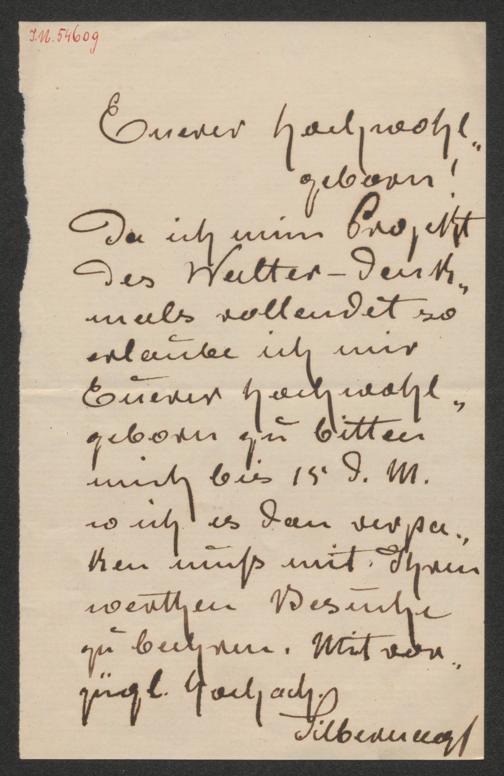 I.N. 54609
Euerer Hochwohl„
geborn!
Da ich mein Projekt
des Walter-Denk„
mals vollendet so
erlaube ich mir
Euerer Hochwohl„
geborn zu bitten
mich bis 15 d. M.
wo ich es dan verpa„
ken muß mit Ihren
werthen Besuche
zu beehren. Mit vor„
zügl. Hochach.
Silbernagl